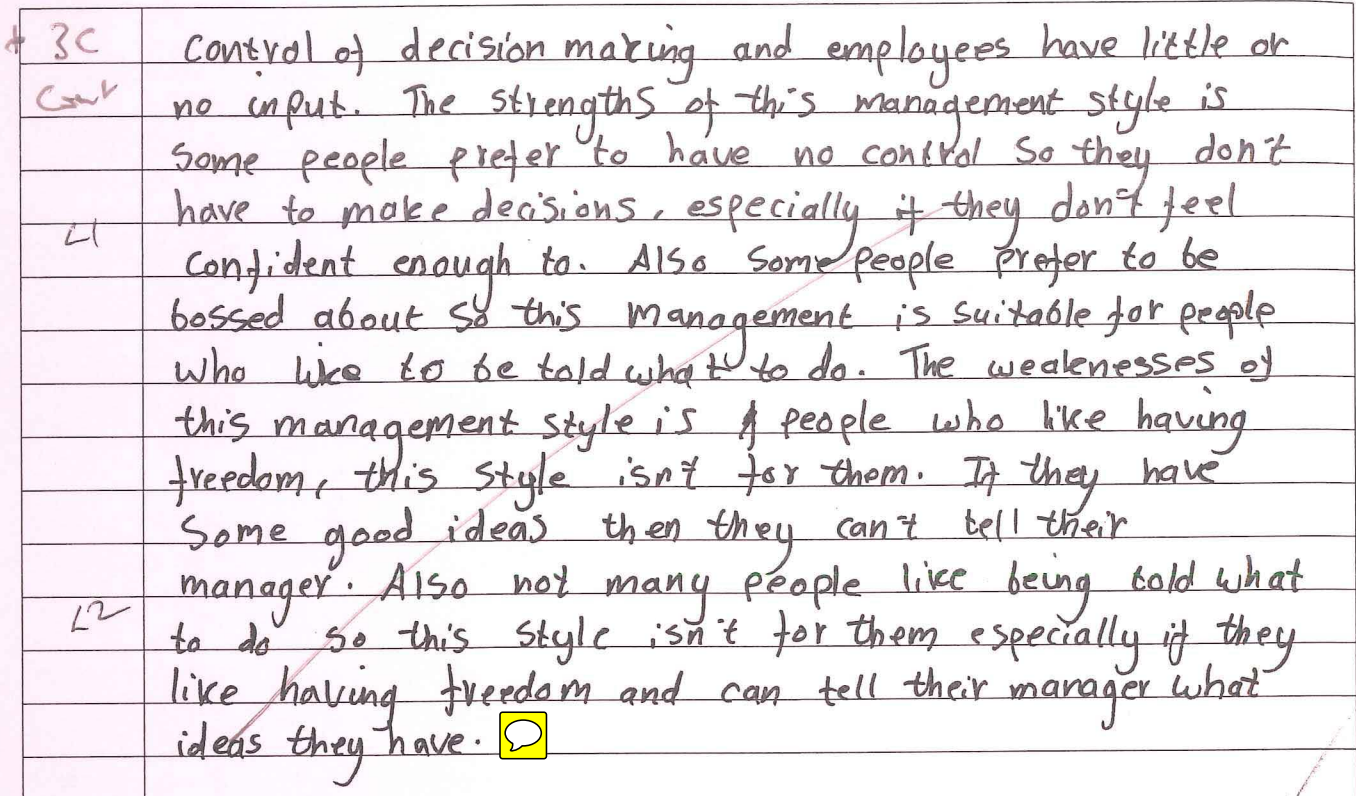 + 3C control of decision making and employees have little or
Cont no input. The strengths of this management style is
some people prefer to have no control so they don't
have to make decisions, especially if they don't feel
L1 confident enough to. Also some people prefer to be
bossed about so this management is suitable for people
who like to be told what to do. The weaknesses of
this management style is people who like having
freedom, this style isn't for them. If they have
some good ideas then they can't tell their
manager. Also not many people like being told what
L2 to do so this style isn't for them especially if they
like having freedom and can tell their manager what
ideas they have.